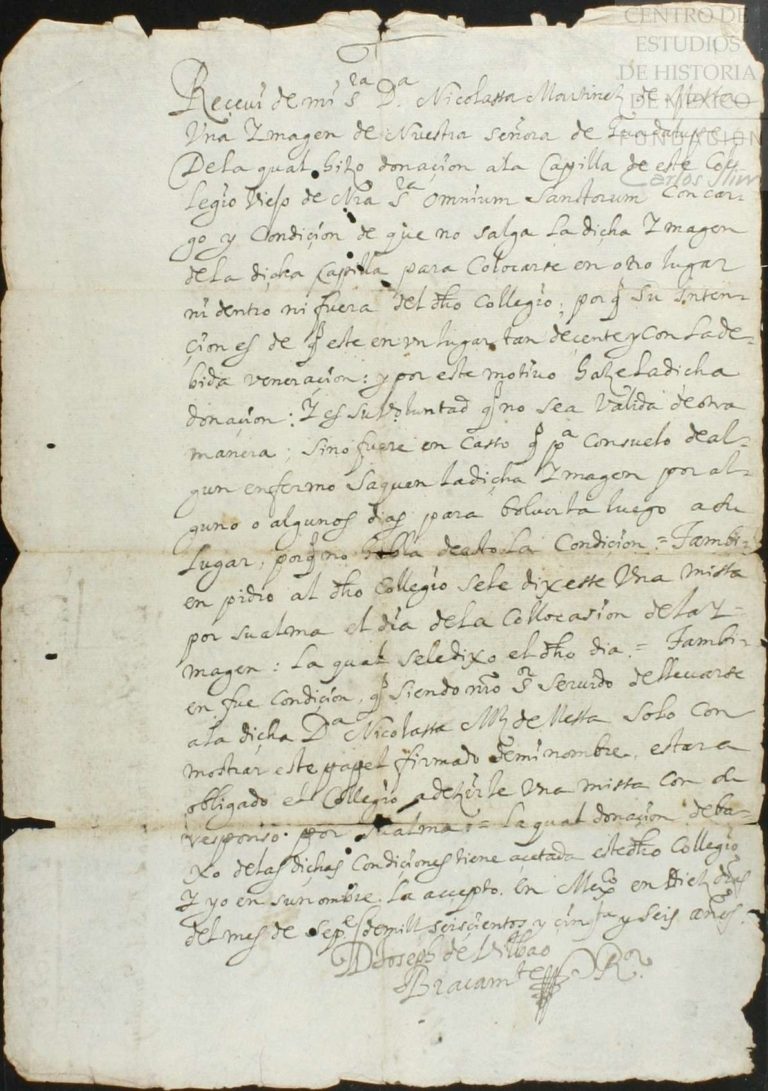 CENTRO DE
ESTUDIOS
DE HISTORIA
DE MÉXICO
FUNDACIÓN
Carlos Slim
Reçeui de mi s.ra D.a Nicolassa Martinez de Messa
Una Ymagen de Nuestra señora de Guadalupe
Dela qual hizo donaçion a la Cappilla de este Col-
legio Viejo de Nra S.ra Omnium Sanctorum Con car-
go y Condiçion de que no salga La dicha Ymagen
de la dicha Cappilla para Colocarse en otro lugar
ni dentro ni fuera del dho Collegio; por q su Inten-
çion es de q este en un lugar tan decente y con La de-
bida veneraçion: y por este motiuo haze La dicha
donaçion: Y es su Voluntad q no sea Valida de otra
manera; sino fuere en Casso q p.a Consuelo de al-
gun enfermo saquen La dicha Ymagen por al-
guno o algunos dias para boluerla luego a su
Lugar, por q no habla de esto La Condiçion = Tambi-
en pidio al dho Collegio se le dixesse Una missa
por su alma el dia de La Collocasion de la Y=
magen: La qual se le dixo el dho dia = Tambi-
en fue Condiçion, q siendo nro S.r seruido de lleuarse
a la dicha D.a Nicolassa Mrz de Messa solo con
mostrar este papel firmado de mi nombre, estara
obligado el Collegio a dezirle Una missa con su
responso por su alma = La qual donaçion deba-
xo de las dichas Condiçiones tiene acetada este dho Collegio
Y yo en su nombre La accepto. En Mex.co en Diez dias
del mes de Sep.e de mill seisçientos y çinq.ta y seis años.
D Joseph de Vilbao
Bracam.te R.or